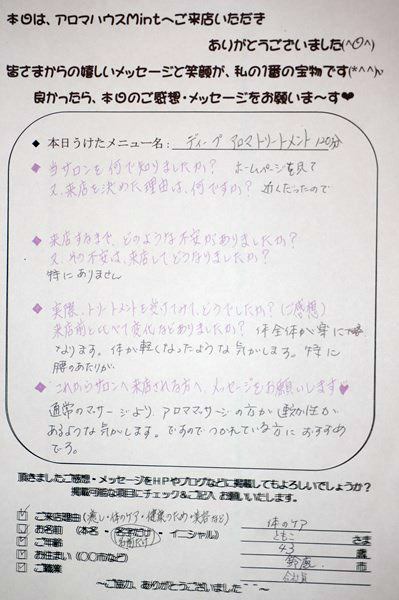 本日は、アロマハウスMintへご来店いただき
ありがとうございました(^O^)
皆さまからの嬉しいメッセージと笑顔が、私の1番の宝物です(*^^*)v
良かったら、本日のご感想・メッセージをお願いま〜す♥
◆ 本日うけたメニュー名： ディープアロマトリートメント 120分
◆ 当サロンを何で知りましたか？ ホームページを見て
又、来店を決めた理由は、何ですか？ 近くだったので
◆ 来店するまで、どのような不安がありましたか？
又、その不安は、来店してどうなりましたか？
特にありません
◆ 実際、トリートメントを受けてみて、どうでしたか？（ご感想）
来店前とくらべて変化などありましたか？ 体全体が楽に
なります。体が軽くなったような気がします。特に
腰のあたりが
◆ これからサロンへ来店される方へ、メッセージをお願いします♥
通常のマッサージより、アロママッサージの方が効果が
あるような気がします。ですのでつかれている方におすすめ
です。
頂きましたご感想・メッセージをHPやブログなどに掲載してもよろしいでしょうか？
掲載可能な項目にチェック&ご記入 お願いいたします。
☑ ご来店理由（癒し・体のケア・健康のため・美容など） 体のケア
☑ お名前 （本名・名字だけ・イニシャル） ともこ さま
名前だけ
☑ ご年齢 43 歳
☑ お住まい（〇〇市など） 鈴鹿 市
☑ ご職業 会社員
〜ご協力、ありがとうございました〜